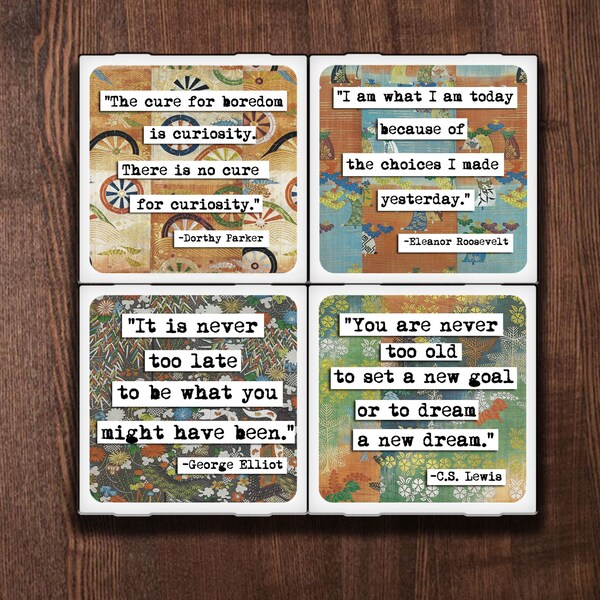 "The cure for boredom
is curiosity.
There is no cure
for curiosity."
-Dorthy Parker
"I am what I am today
because of
the choices I made
yesterday."
-Eleanor Roosevelt
"It is never
too late
to be what you
might have been."
-George Elliot
"You are never
too old
to set a new goal
or to dream
a new dream."
-C.S. Lewis